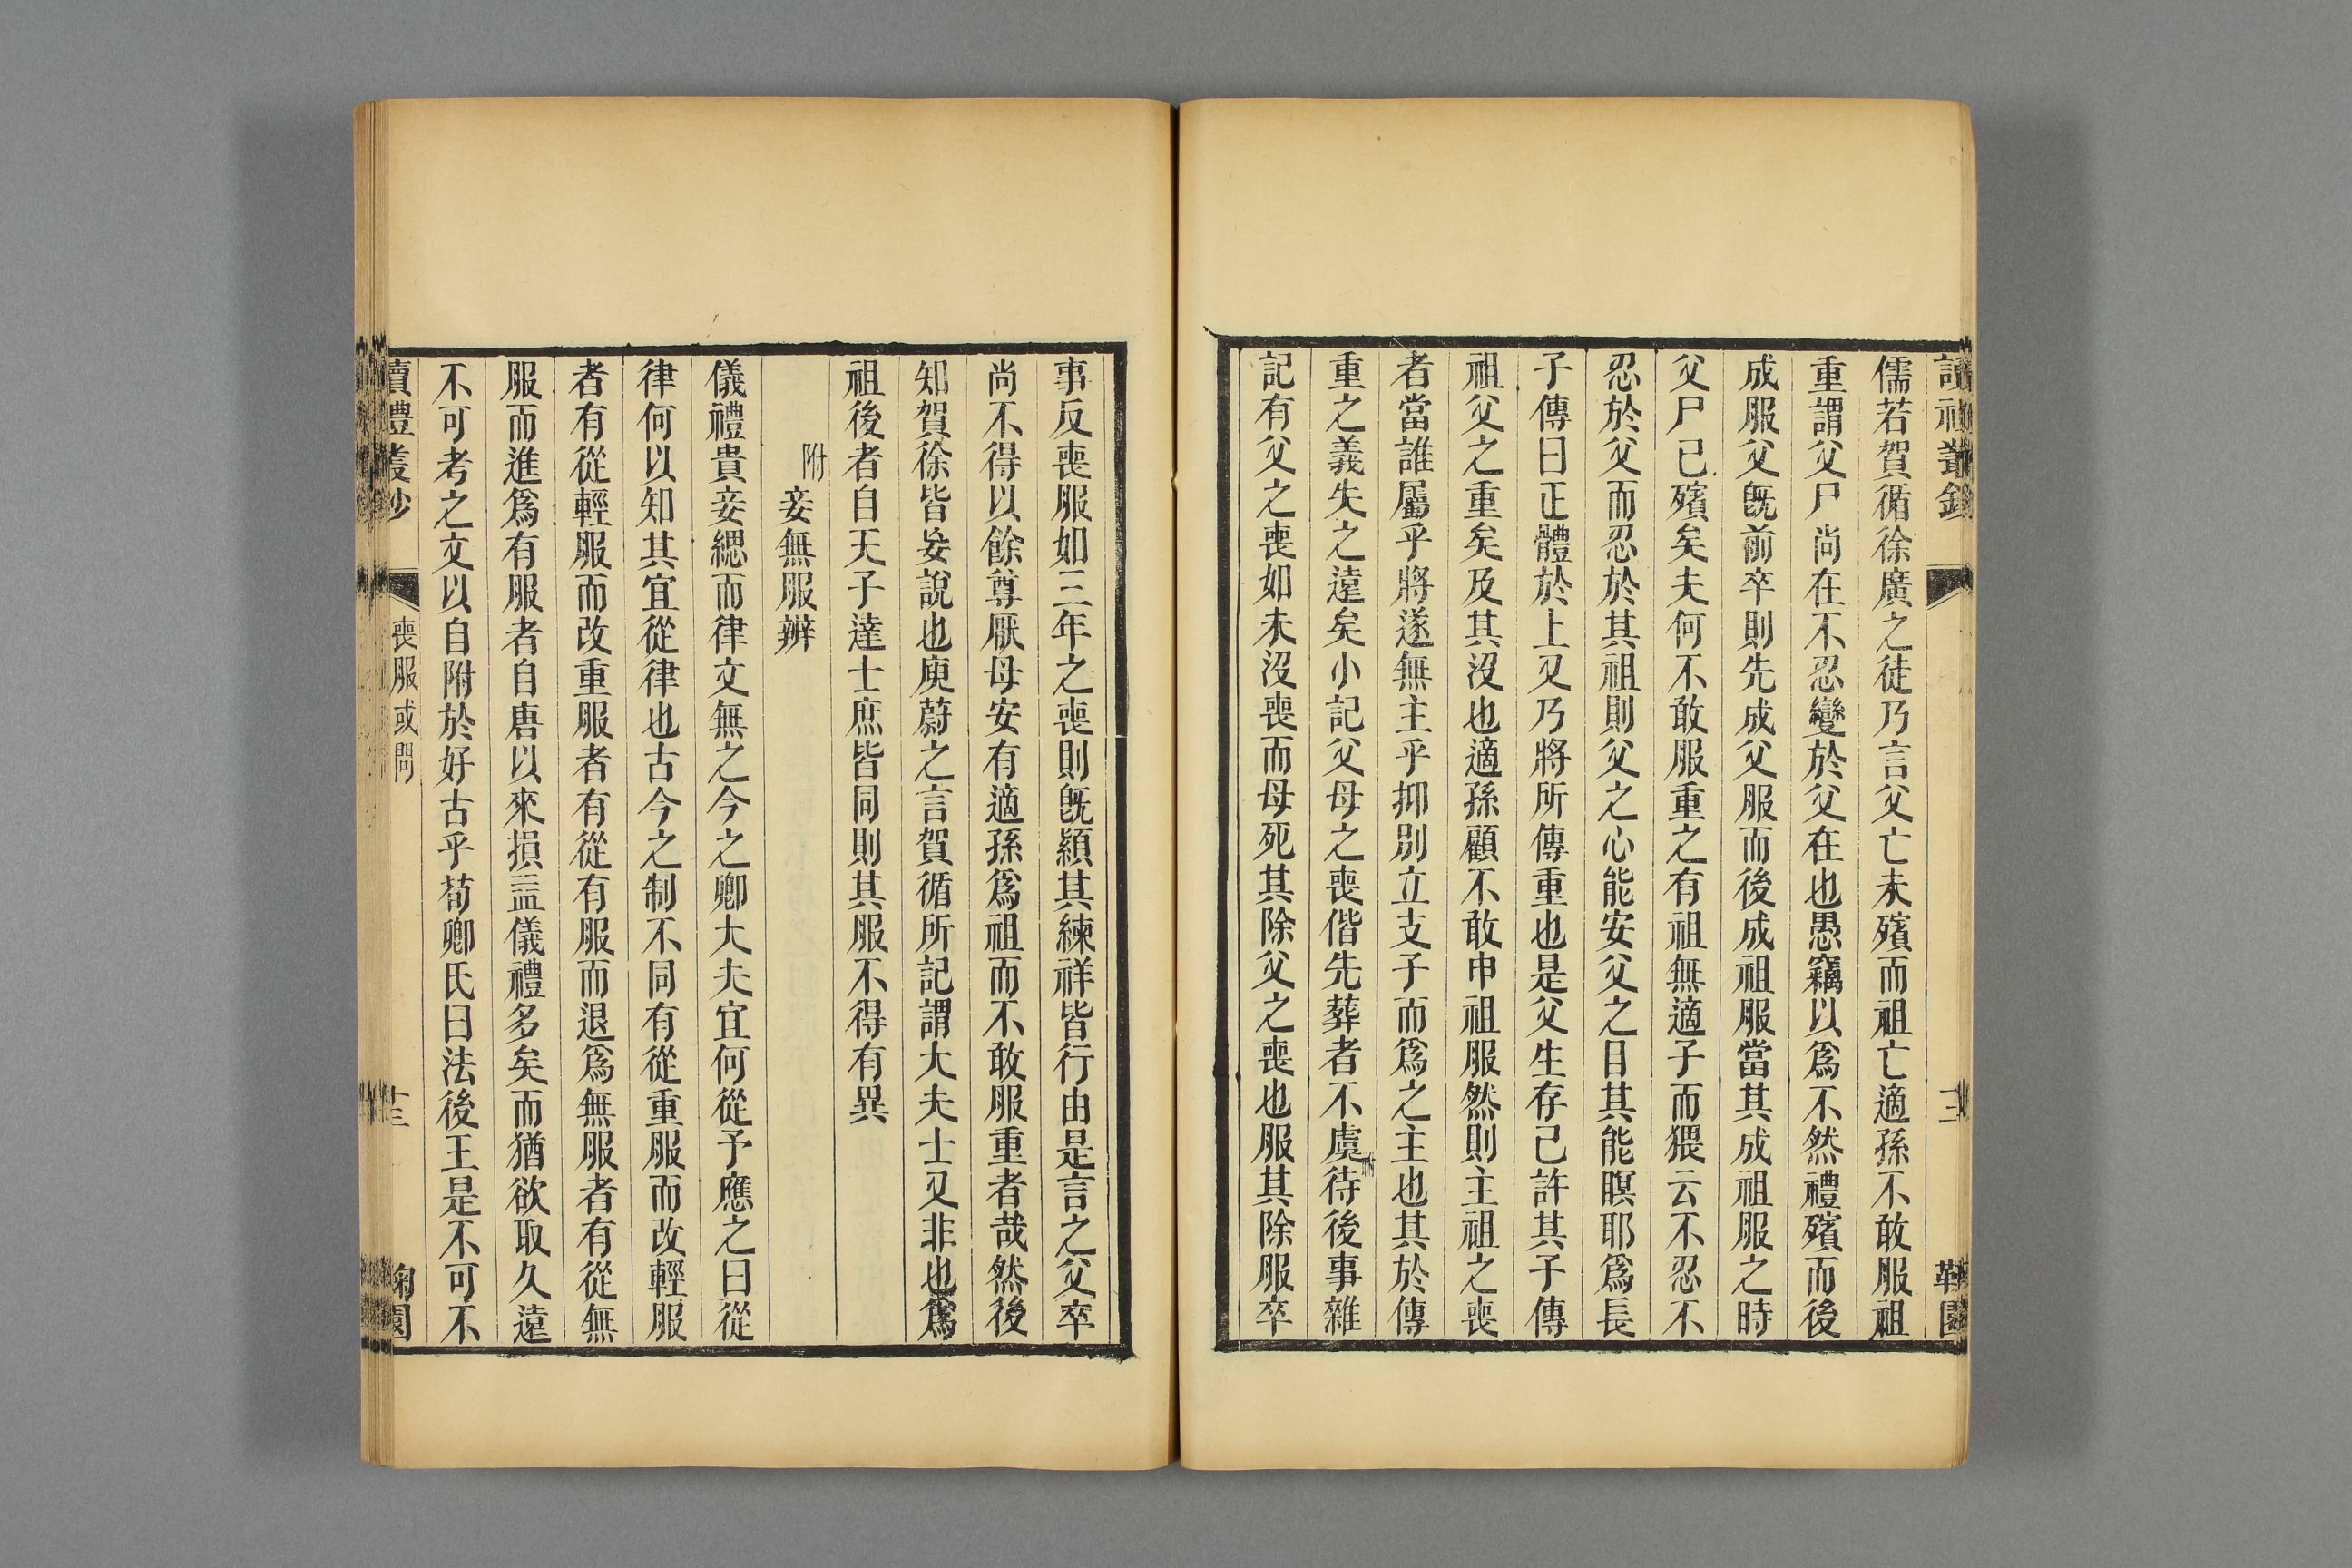 儒若賀循徐廣之徒乃言父亡未殯而祖亡適孫不敢服祖
重謂父尸尚在不忍變於父在也愚竊以為不然禮殯而後
成服父旣前卒則先成父服而後成祖服當其成祖服之時
父尸已殯矣夫何不敢服重之有祖無適子而猥云不忍不
忍於父而忍於其祖則父之心能安父之目其能瞑耶爲長
子傳曰正體於上又乃將所傳重也是父生存已許其子傳
祖父之重矣及其沒也適孫顧不敢申祖服然則主祖之喪
者當誰屬乎將遂無主乎抑別立支子而爲之主也其於傳
重之義失之遠矣小記父母之喪偕先葬者不虞待後事雜
記有父之喪如未沒喪而母死其除父之喪也服其除服卒
事反喪服如三年之喪則旣顈其練祥皆行由是言之父卒
尚不得以餘尊厭母安有適孫爲祖而不敢服重者哉然後
知賀徐皆妄說也庾蔚之言賀循所記謂大夫士又非也爲
祖後者自天子達士庶皆同則其服不得有異
附妾無服辨
儀禮貴妾緦而律文無之今之卿大夫宜何從予應之曰從
律何以知其宜從律也古今之制不同有從重服而改輕服
者有從輕服而改重服者有從有服而退爲無服者有從無
服而進爲有服者自唐以來損益儀禮多矣而猶欲取久遠
不可考之文以自附於好古乎荀卿氏曰法後王是不可不
讀禮叢鈔
喪服或問
十三
鞠園